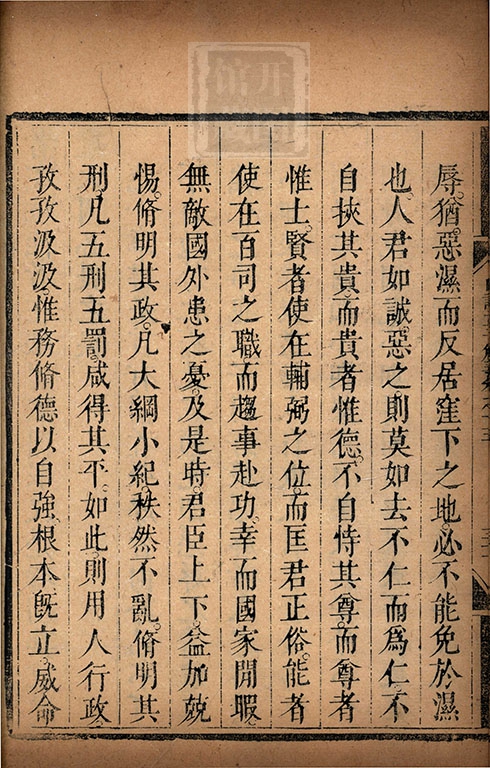 辱。猶惡濕而反居窪下之地。必不能免於濕
也。人君如誠惡之。則莫如去不仁而為仁。不
自挾其貴。而貴者惟德。不自恃其尊。而尊者
惟士。賢者使在輔弼之位。而匡君正俗。能者
使在百司之職。而趨事赴功。幸而國家閒暇。
無敵國外患之憂。及是時君臣上下。益加兢
惕。脩明其政。凡大綱小紀。秩然不亂。脩明其
刑。凡五刑五罰。咸得其平。如此則用人行政
孜孜汲汲。惟務脩德以自強。根本既立。威命